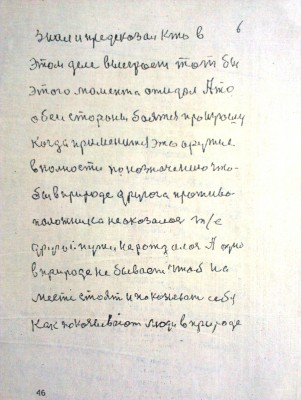 6
Знал и предсказал Кто в
Этом деле выиграет тот бы
Этого момента ожидал А то
обеи стороны боятся проигрошу
когда применит Это оружие
вполности по назначению что
бы в природе другога противо
положника неоказалося т/е
другой нужи нерождался А оно
в природе не бывает чтоб на
месте стоят и показывает себя
Как показывают люди в природе
46